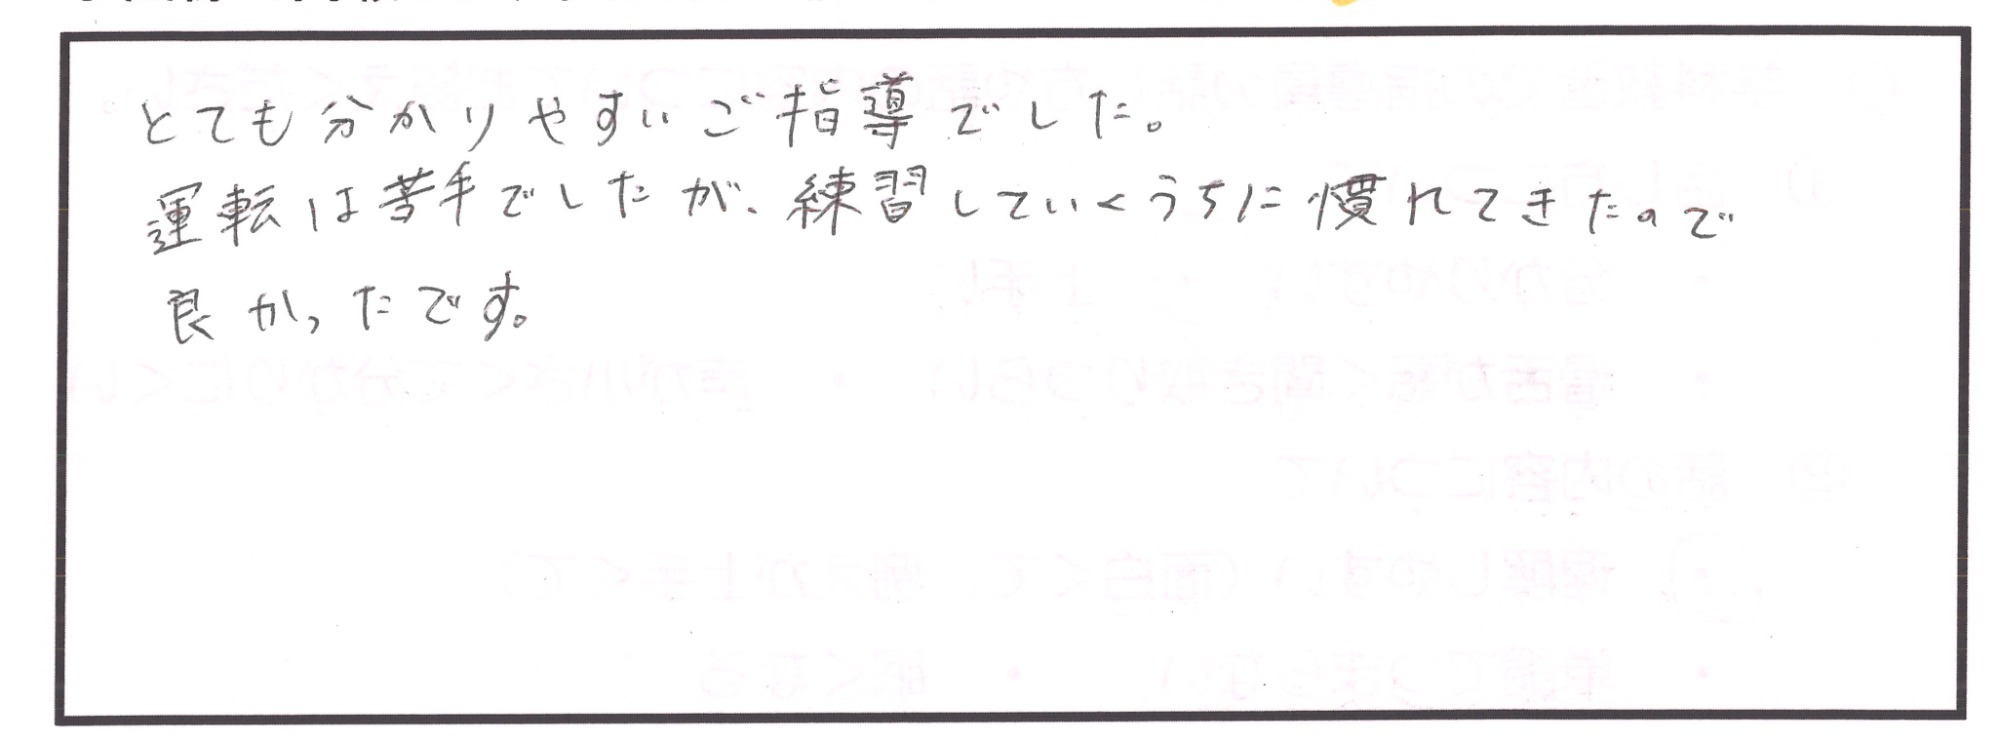 とても分かりやすいご指導でした。
運転は苦手でしたが、練習していくうちに慣れてきたので
良かったです。